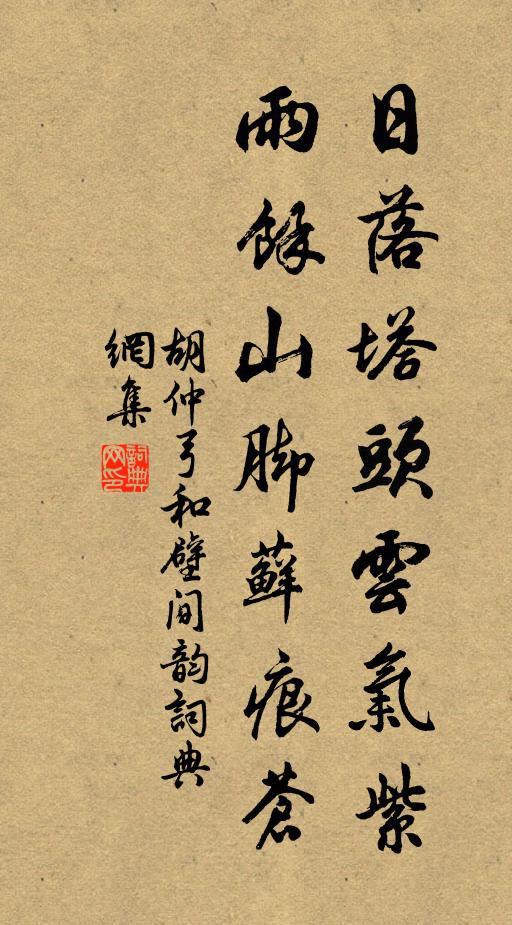 日落塔頭雲氣紫
雨餘山脚蘚痕蒼
胡仲弓和壁间韵詞典
網集
詞典
网印